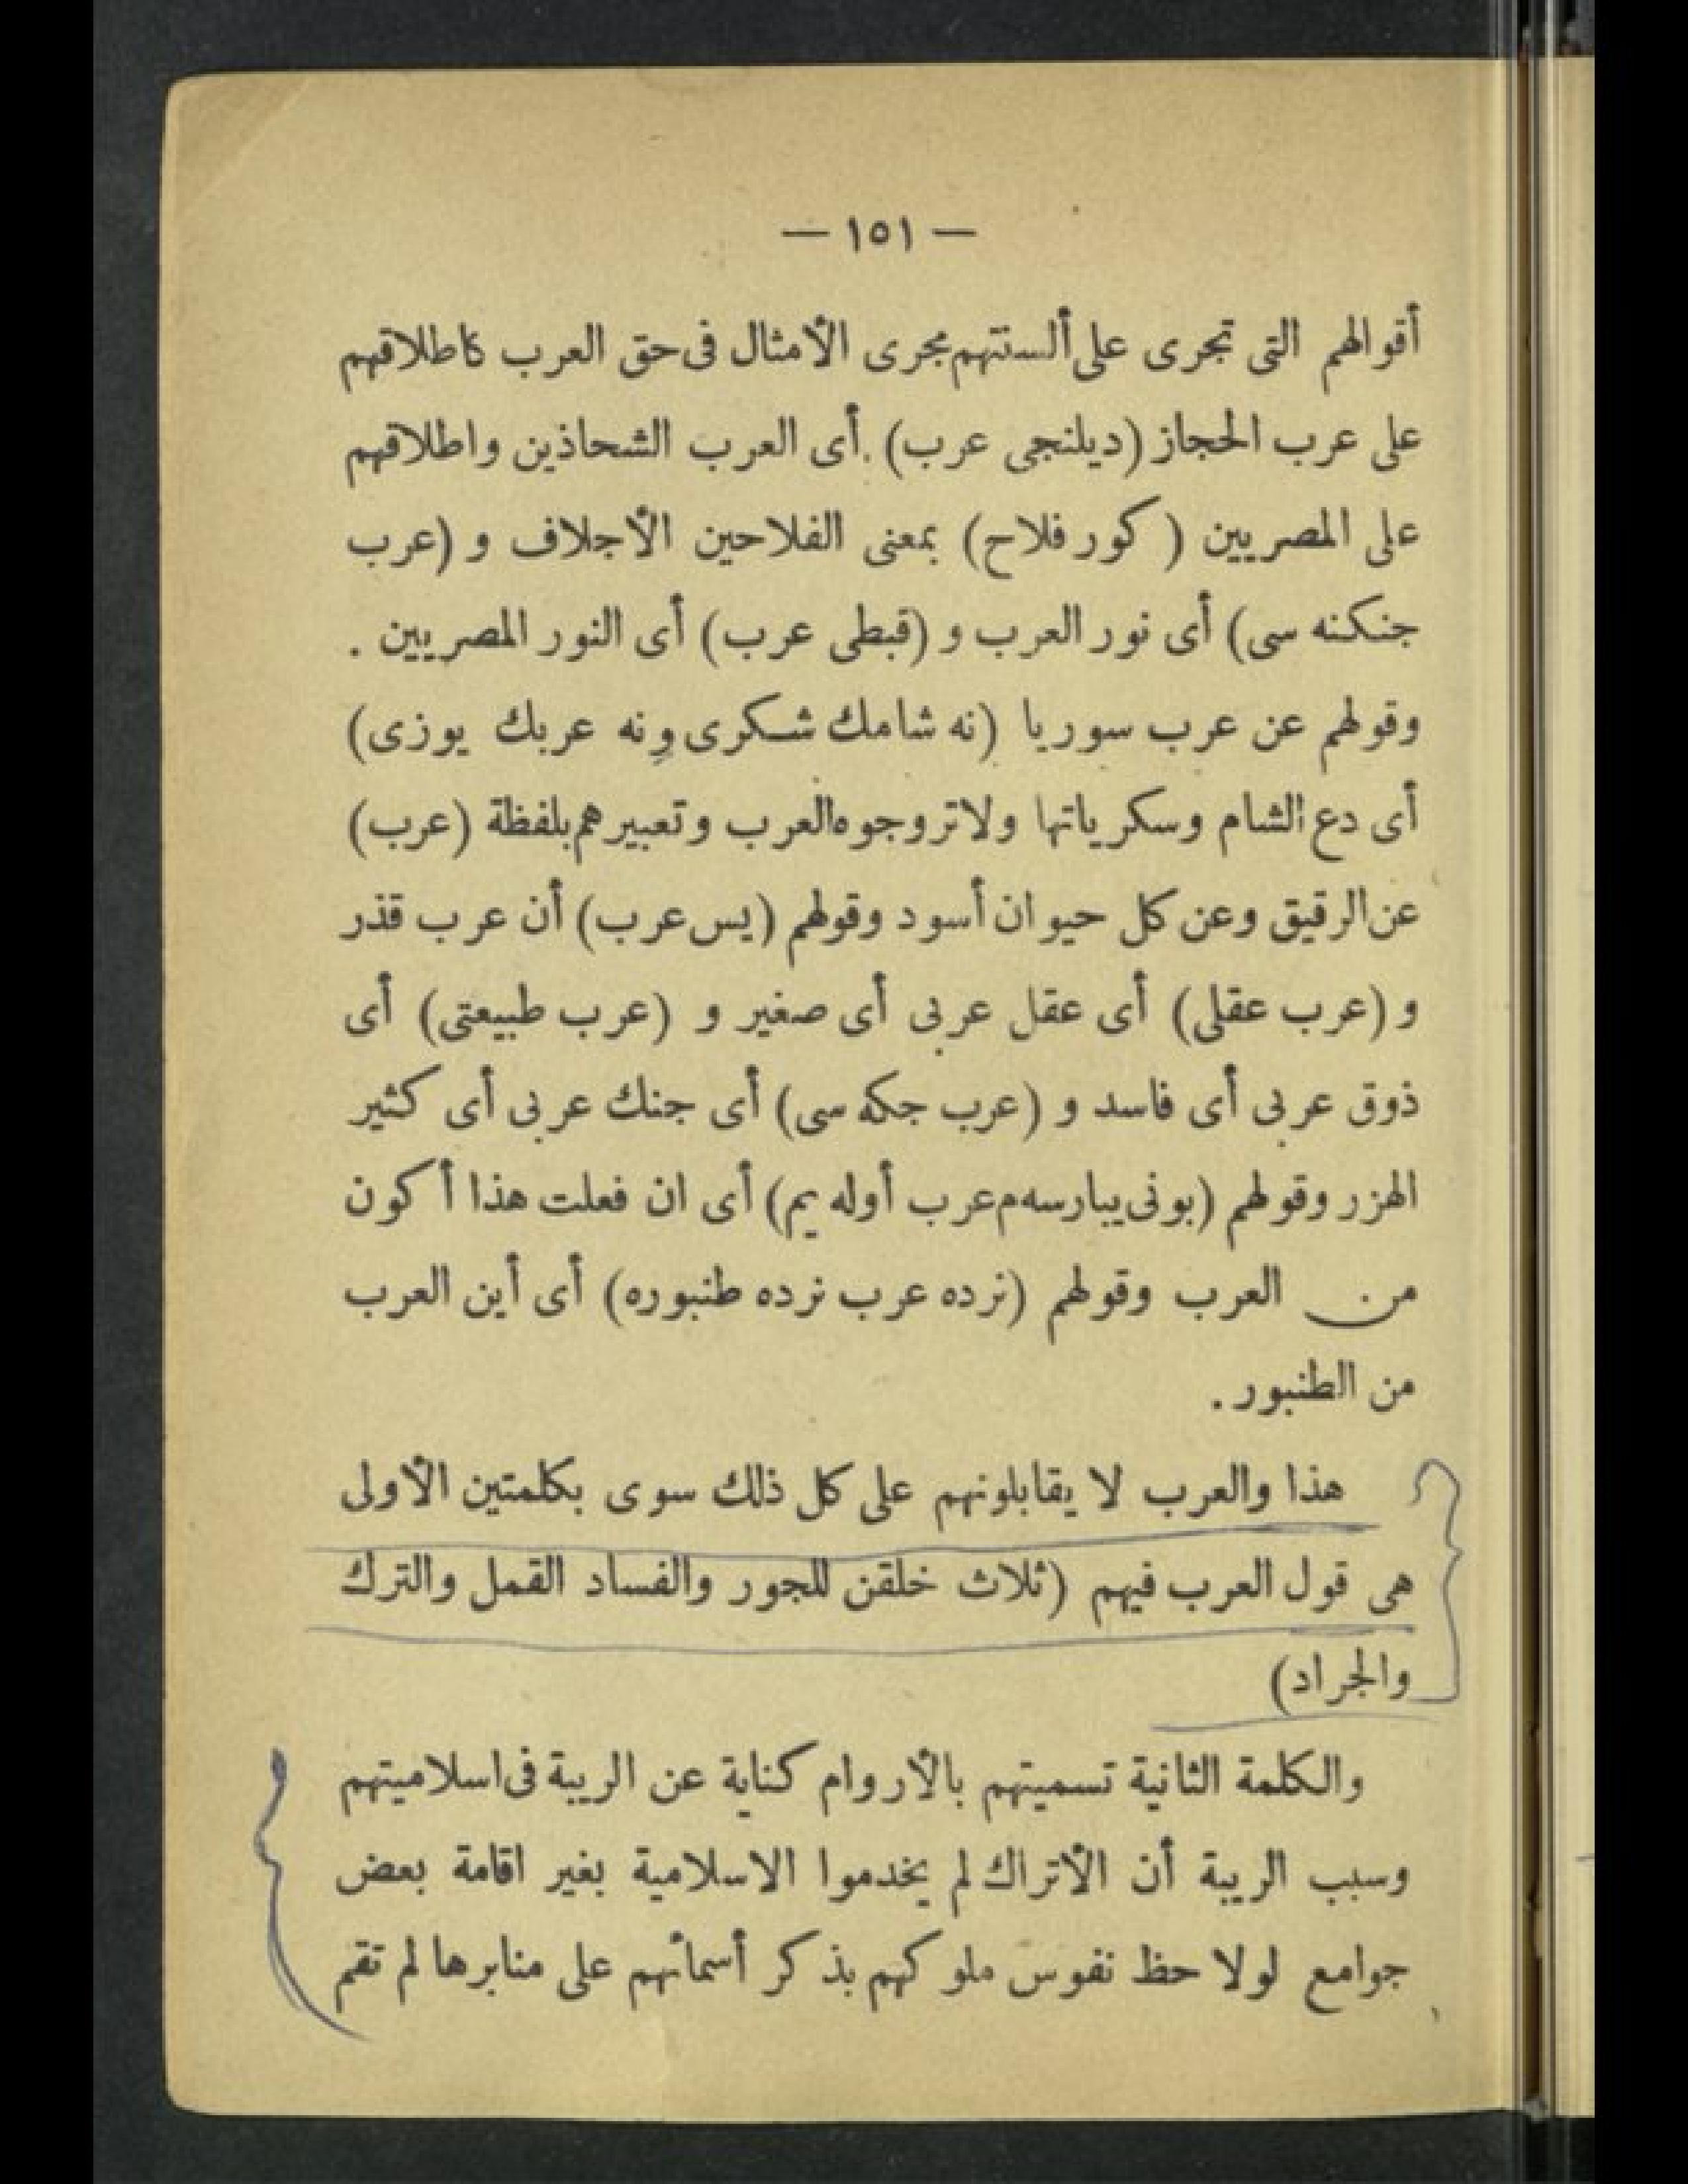 — ١٥١ —
أقوالهم التى تجرى على ألسنتهم مجرى الأمثال فى حق العرب كاطلاقهم
على عرب الحجاز (ديلنجى عرب) أى العرب الشحاذين واطلاقهم
على المصريين (كور فلاح) بمعنى الفلاحين الأجلاف و (عرب
جنكنه سى) أى نور العرب و (قبطى عرب) أى النور المصريين .
وقولهم عن عرب سوريا (نه شامك شكرى ونه عربك يوزى)
أى دع الشام وسكرياتها ولا تر وجوه العرب وتعبيرهم بلفظة (عرب)
عن الرقيق وعن كل حيوان أسود وقولهم (يس عرب) أن عرب قذر
و (عرب عقلى) أى عقل عربى أى صغير و (عرب طبيعتى) أى
ذوق عربى أى فاسد و (عرب جكه سى) أى جنك عربى أى كثير
الهزر وقولهم (بونى يبارسه م عرب أوله يم) أى ان فعلت هذا أكون
من العرب وقولهم (نرده عرب نرده طنبوره) أى أين العرب
من الطنبور .
هذا والعرب لا يقابلونهم على كل ذلك سوى بكلمتين الأولى
هى قول العرب فيهم (ثلاث خلقن للجور والفساد القمل والترك
والجراد)
والكلمة الثانية تسميتهم بالأروام كناية عن الريبة فى اسلاميتهم
وسبب الريبة أن الأتراك لم يخدموا الاسلامية بغير اقامة بعض
جوامع لولا حظ نفوس ملوكهم بذكر أسمائهم على منابرها لم تقم